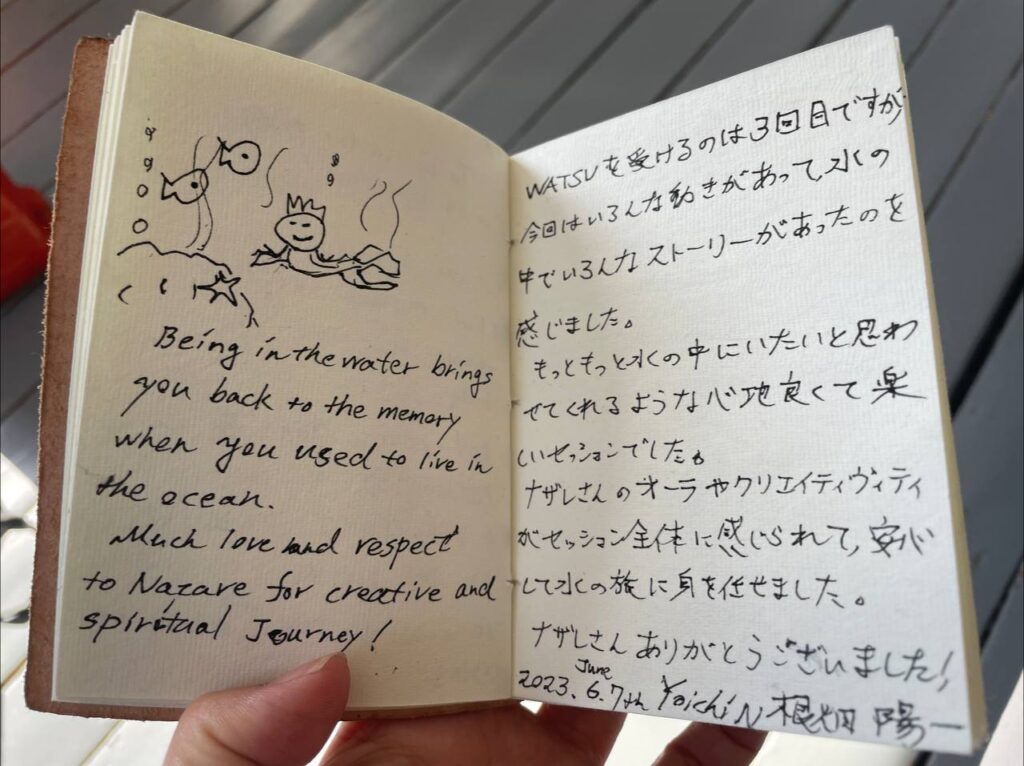 Being in the water brings
you back to the memory
when you used to live in
the ocean.
Much love and respect
to Nazare for creative and
spiritual Journey!
WATSUを受けるのは3回目ですが
今回はいろんな動きがあって、水の
中でいろんなストーリーがあったのを
感じました。
もっともっと水の中にいたいと思わ
せてくれるような心地良くて楽
しいセッションでした。
ナザレさんのオーラやクリエイティヴィティ
がセッション全体に感じられて、安心
して水の旅に身を任せました。
ナザレさんありがとうございました!
June
2023.6.7th Yoichi N 根畑 陽一